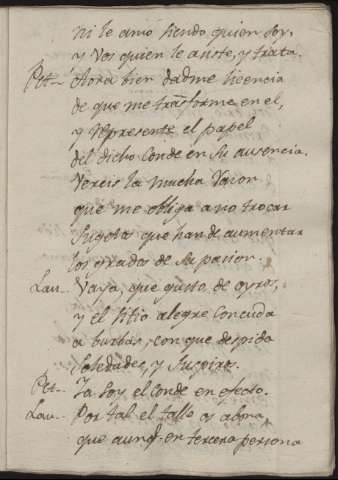 ni le amo siendo quien soy,
y vos quien le asiste, y trata.
Pet— Aora bien dadme licencia
de que me trasforme en el,
y represente el papel
del dicho Conde en su ausencia.
Vereis la mucha razon
que me obliga a no trocar
sugetos que han de aumentar
los grados de su pasion.
Lau— Vaya, que gusto de oyros,
y el sitio alegre convida
a burlas, con que despida
soledades, y suspiros.
Pet— Ya soy el Conde en efeto.
Lau— Por tal el talle os abona
que aunq. en tercera persona